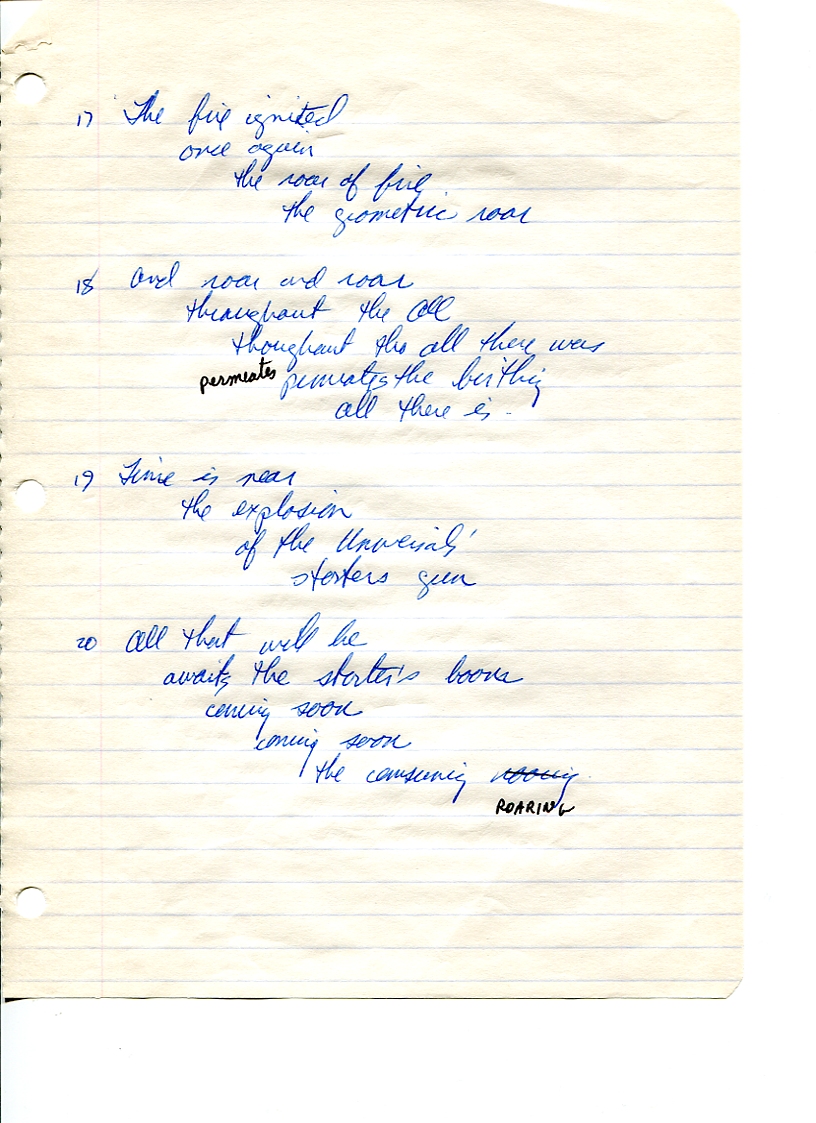 17 The fire ignited
once again
the roar of fire
the geometric roar
18 and roar and roar
throughout the all
thoughout the all there was
permeates permeates the birthing
all there is -
19 Time is near
the explosion
of the Universals'
starters gun
20 all that will be
awaits the starter's boom
coming soon
coming soon
the consuming
ROARING